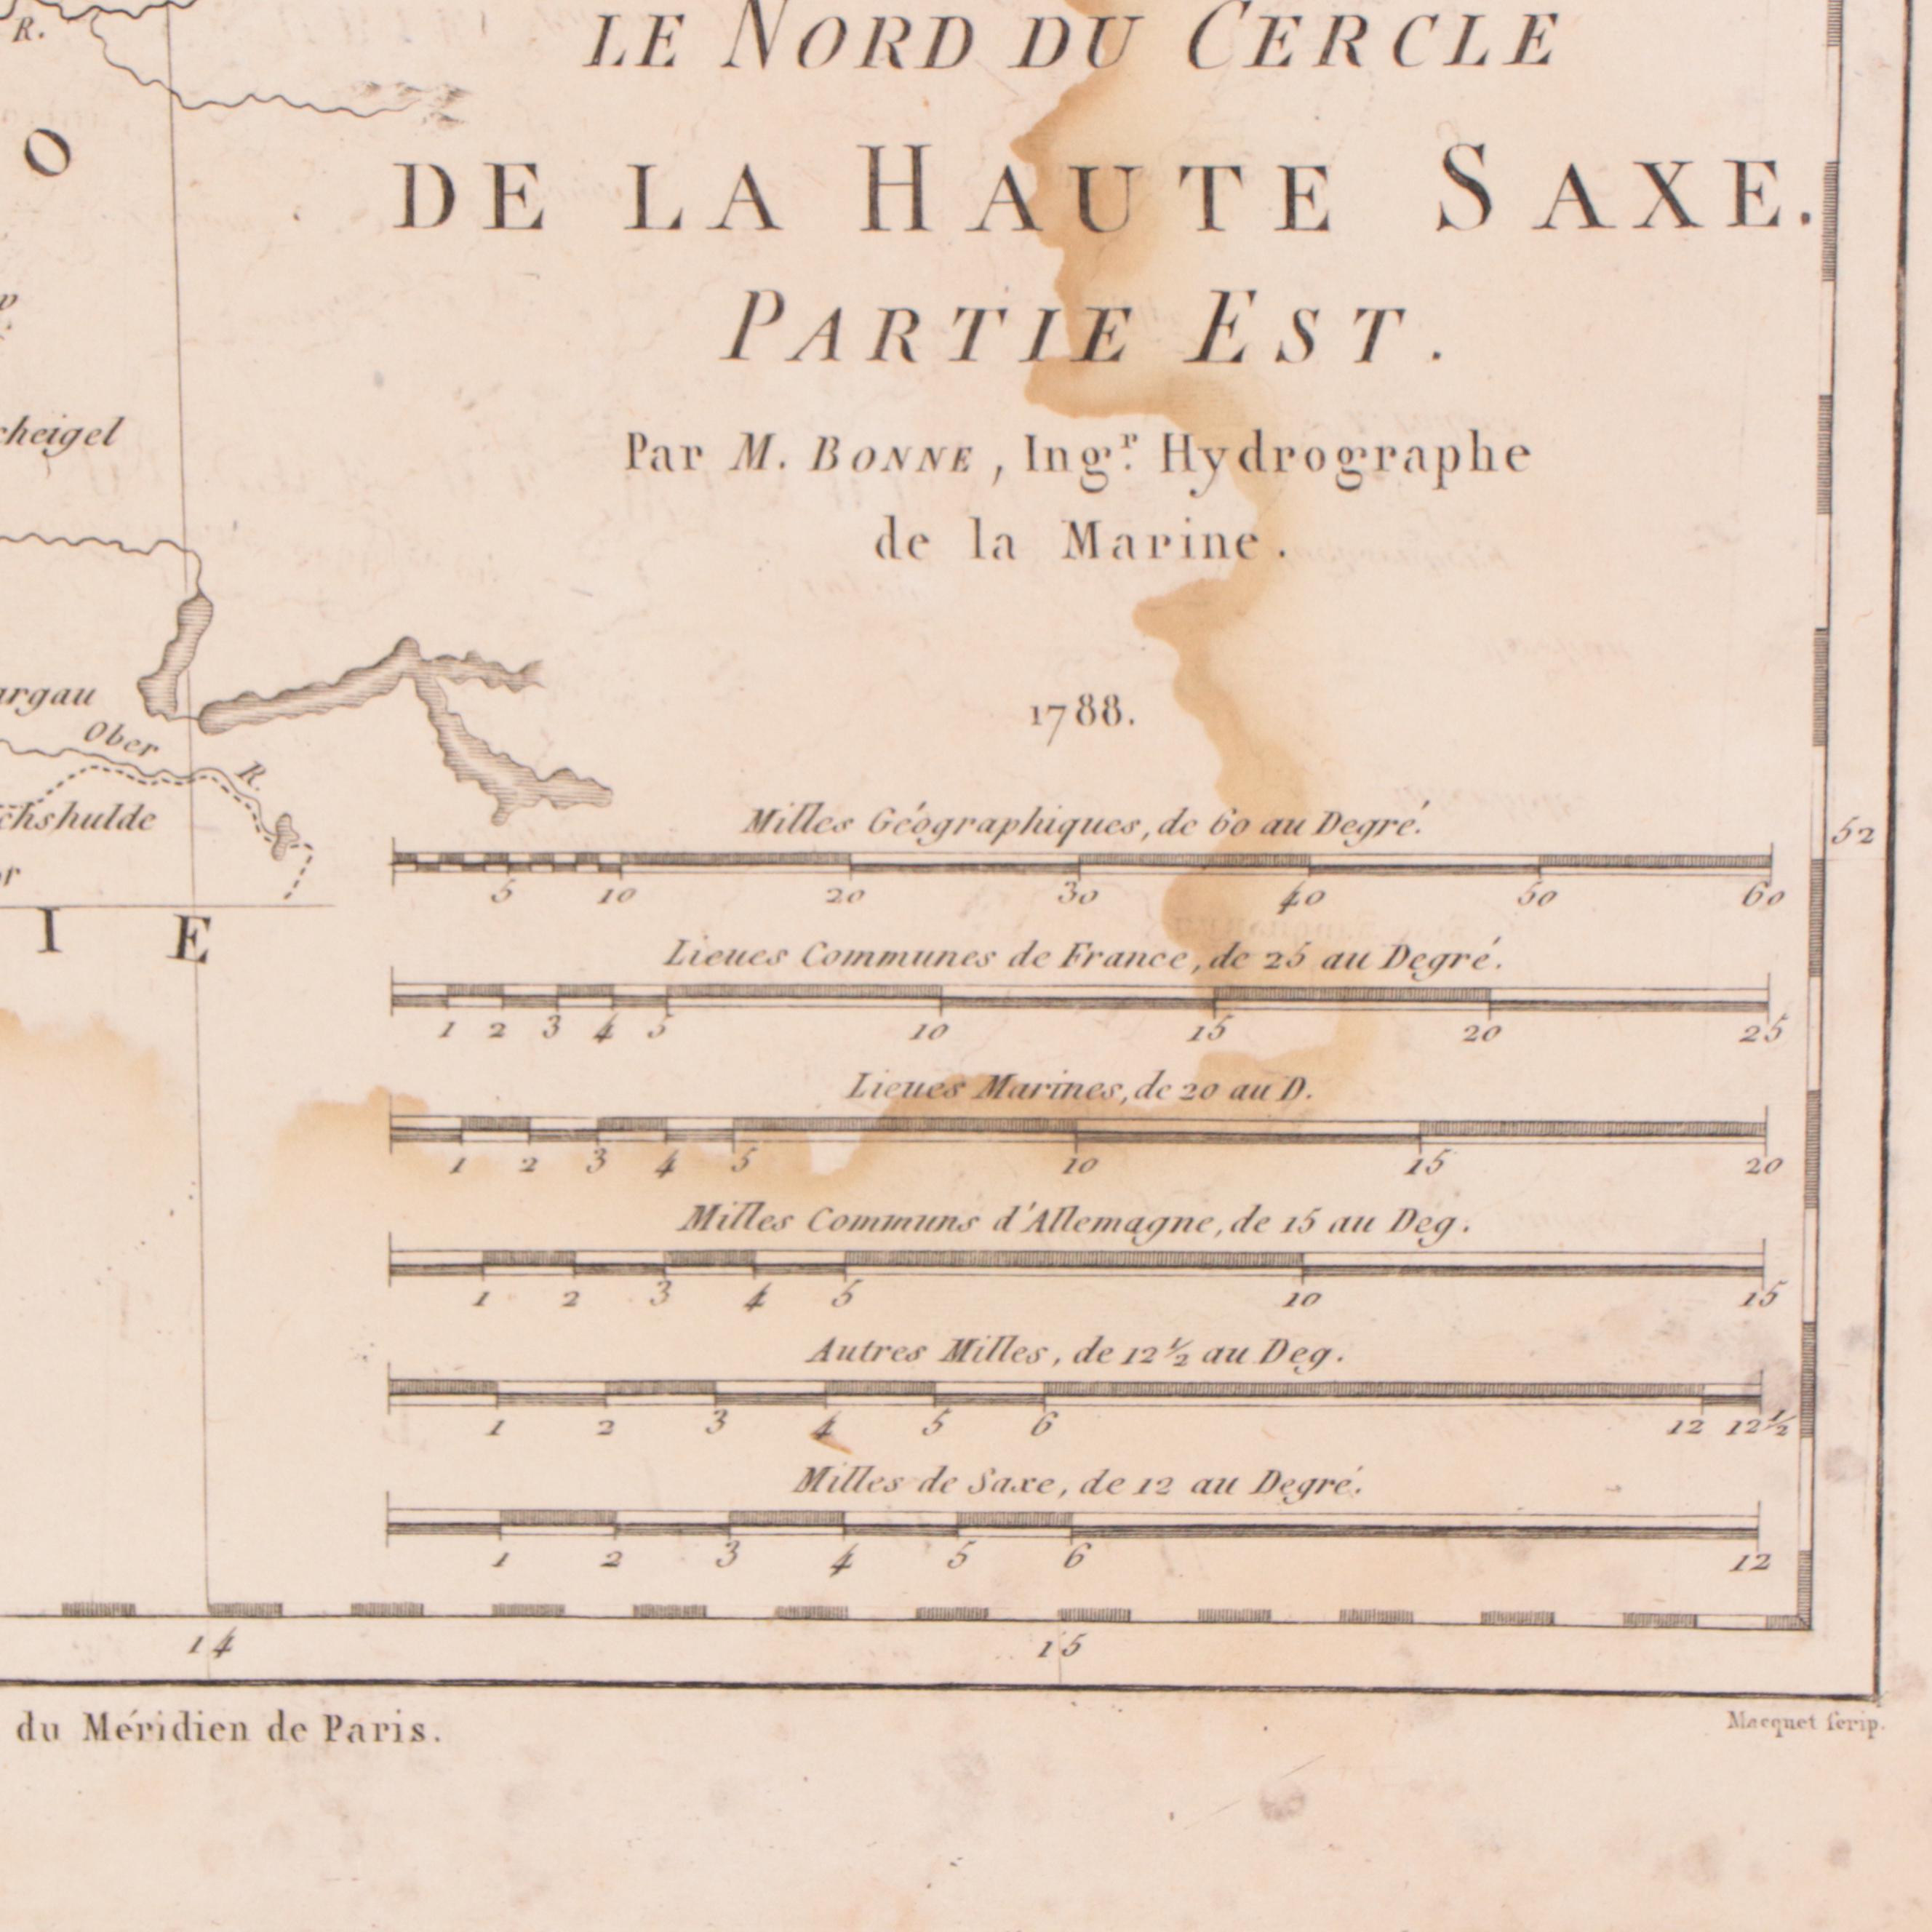 R.
LE NORD DU CERCLE
O
DE LA HAUTE SAXE.
PARTIE EST.
Par M. BONNE, Ing.r Hydrographe
de la Marine.
1788.
Ober R.
I E
Milles Géographiques, de 60 au Degré.
5 10 20 30 40 50 60
52
Lieues Communes de France, de 25 au Degré.
1 2 3 4 5 10 15 20 25
Lieues Marines, de 20 au D.
1 2 3 4 5 10 15 20
Milles Communs d'Allemagne, de 15 au Deg.
1 2 3 4 5 10 15
Autres Milles, de 12½ au Deg.
1 2 3 4 5 6 12 12½
Milles de Saxe, de 12 au Degré.
1 2 3 4 5 6 12
14 15
du Méridien de Paris.
Macquet ſcrip.